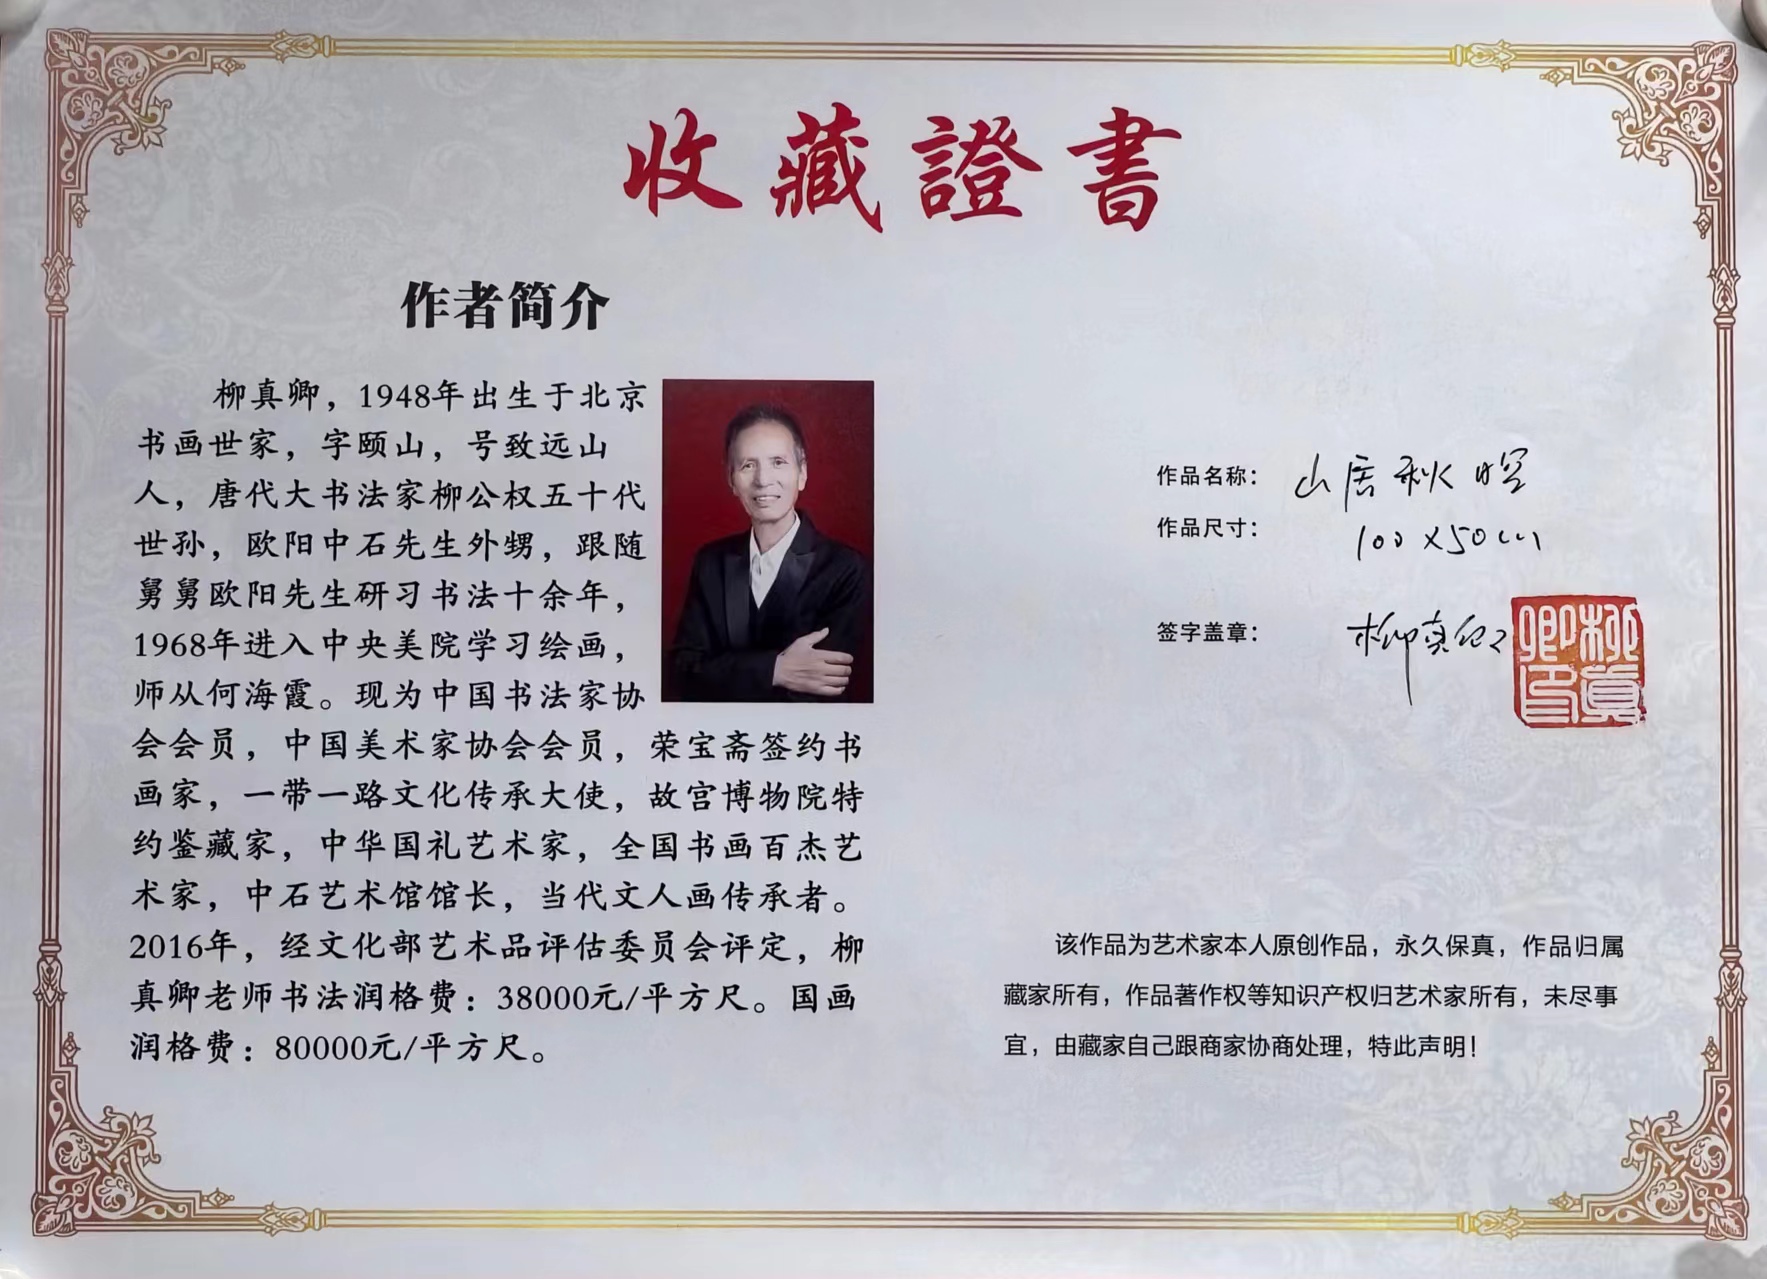 收藏證書
作者简介
柳真卿，1948年出生于北京
书画世家，字颐山，号致远山
人，唐代大书法家柳公权五十代
世孙，欧阳中石先生外甥，跟随
舅舅欧阳先生研习书法十余年，
1968年进入中央美院学习绘画，
师从何海霞。现为中国书法家协
会会员，中国美术家协会会员，荣宝斋签约书
画家，一带一路文化传承大使，故宫博物院特
约鉴藏家，中华国礼艺术家，全国书画百杰艺
术家，中石艺术馆馆长，当代文人画传承者。
2016年，经文化部艺术品评估委员会评定，柳
真卿老师书法润格费：38000元/平方尺。国画
润格费：80000元/平方尺。
作品名称：山居秋暝
作品尺寸：100x50cm
签字盖章：柳真卿
柳真卿印
该作品为艺术家本人原创作品，永久保真，作品归属
藏家所有，作品著作权等知识产权归艺术家所有，未尽事
宜，由藏家自己跟商家协商处理，特此声明！